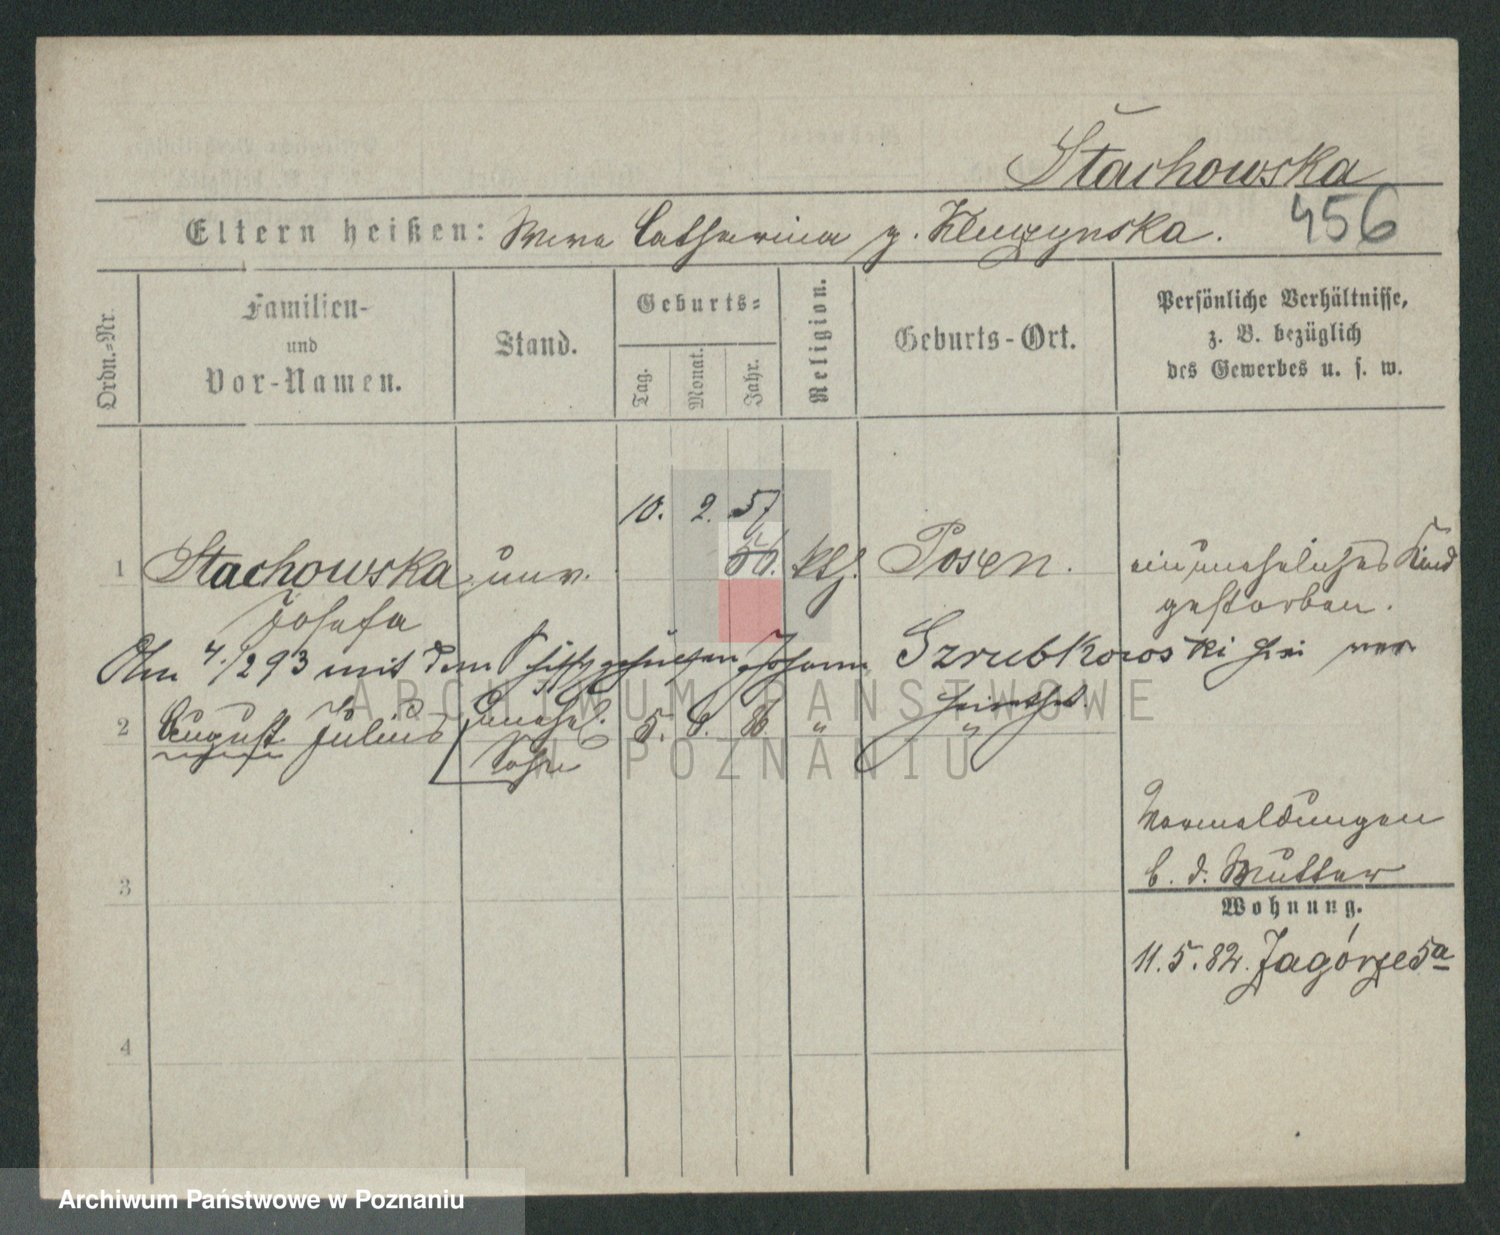 Stachowska
456
Eltern heißen: Catharina g. Kluczynska.
Ordn.-Nr.
Familien- und Vor-Namen.
Stand.
Geburts-
Tag.
Monat.
Jahr.
Religion.
Geburts-Ort.
Persönliche Verhältnisse,
z. B. bezüglich
des Gewerbes u. s. w.
10. 2. 57
1 Stachowska unv. 56. kth. Posen. ein uneheliches Kind
Josefa gestorben.
Am 4./2 93 mit dem Schiffsgehülfen Johann Szrubkowski hier ver
heirathet.
2 August Julius unehel. 5. 8. " "
Sohn
Vormeldungen
b. d. Mutter
3
Wohnung.
11.5.82. Zagórze 5a
4
ARCHIWUM PAŃSTWOWE
W POZNANIU
Archiwum Państwowe w Poznaniu